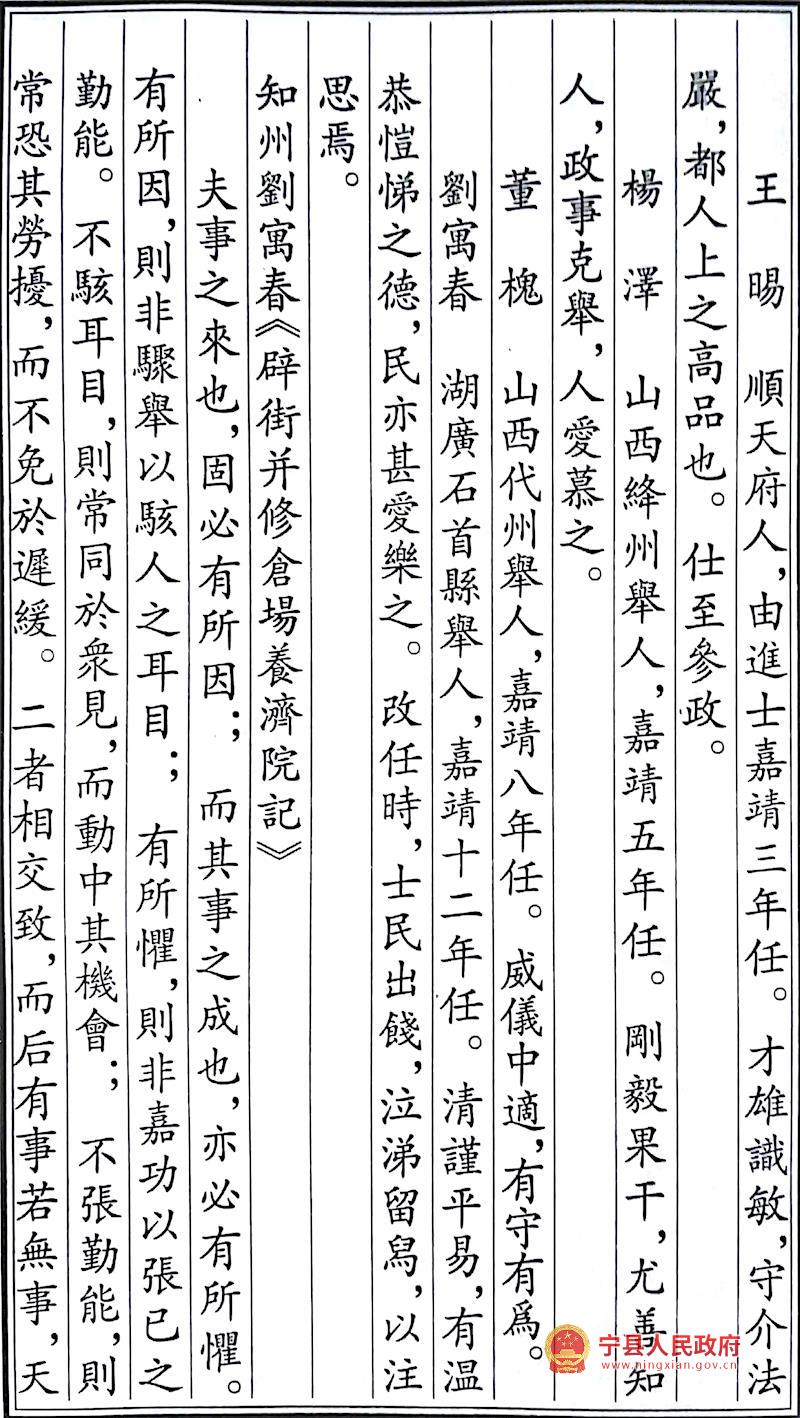 王　晹　順天府人，由進士嘉靖三年任。才雄識敏，守介法
嚴，都人上之高品也。仕至參政。
楊　澤　山西絳州舉人，嘉靖五年任。剛毅果干，尤善知
人，政事克舉，人愛慕之。
董　槐　山西代州舉人，嘉靖八年任。威儀中適，有守有爲。
劉寓春　湖廣石首縣舉人，嘉靖十二年任。清謹平易，有温
恭愷悌之德，民亦甚愛樂之。改任時，士民出餞，泣涕留舄，以注
思焉。
知州劉寓春《辟街并修倉場養濟院記》
夫事之來也，固必有所因；而其事之成也，亦必有所懼。
有所因，則非驟舉以駭人之耳目；有所懼，則非嘉功以張已之
勤能。不駭耳目，則常同於衆見，而動中其機會；不張勤能，則
常恐其勞擾，而不免於遲緩。二者相交致，而后有事若無事，天
宁县人民政府
www.ningxian.gov.cn